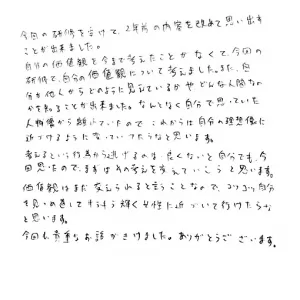 今回の研修を受けて、2年前の内容を改めて思い出す
ことが出来ました。
自分の価値観を今まで考えたことがなくて、今回の
研修で、自分の価値観について考えました。また、自
分が他人からどのように見えているかやどんな人間なの
かを知ることが出来ました。なんとなく自分で思っていた
人物像から離れていたので、これからは自分の理想像に
近づけるようになっていけたらなと思います。
考えるという行為から逃げるのは、良くないと自分でも、今
回思ったので、まずはその考えを考えていこうと思います。
価値観はまだ変えられると言うことなので、コツコツ自分
を見つめ直してキラキラ輝く女性に近づいて行けたらな
と思います。
今回も貴重なお話がきけました。ありがとうございます。